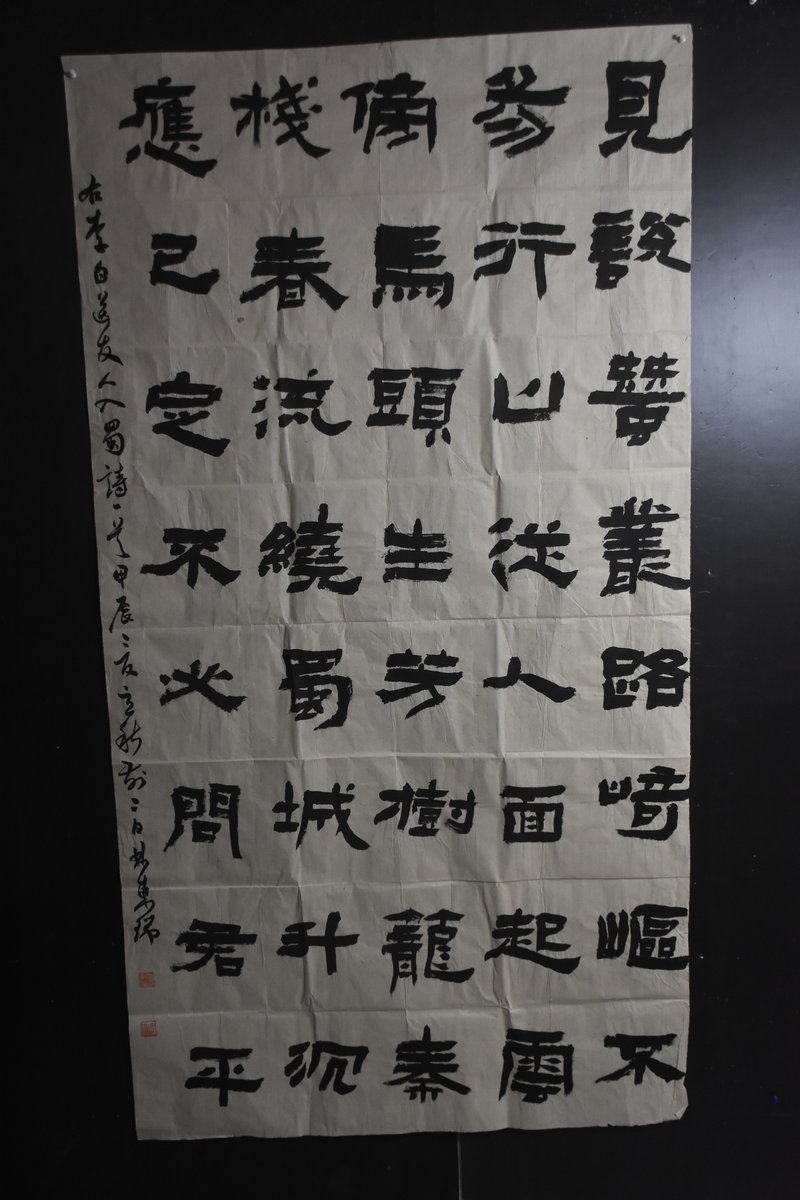 見說蠶叢路崎嶇不
易行山從人面起雲
傍馬頭生芳樹籠秦
棧春流繞蜀城升沉
應已定不必問君平
右李白送友人入蜀詩一首甲辰之夏立秋前二日林集瑞